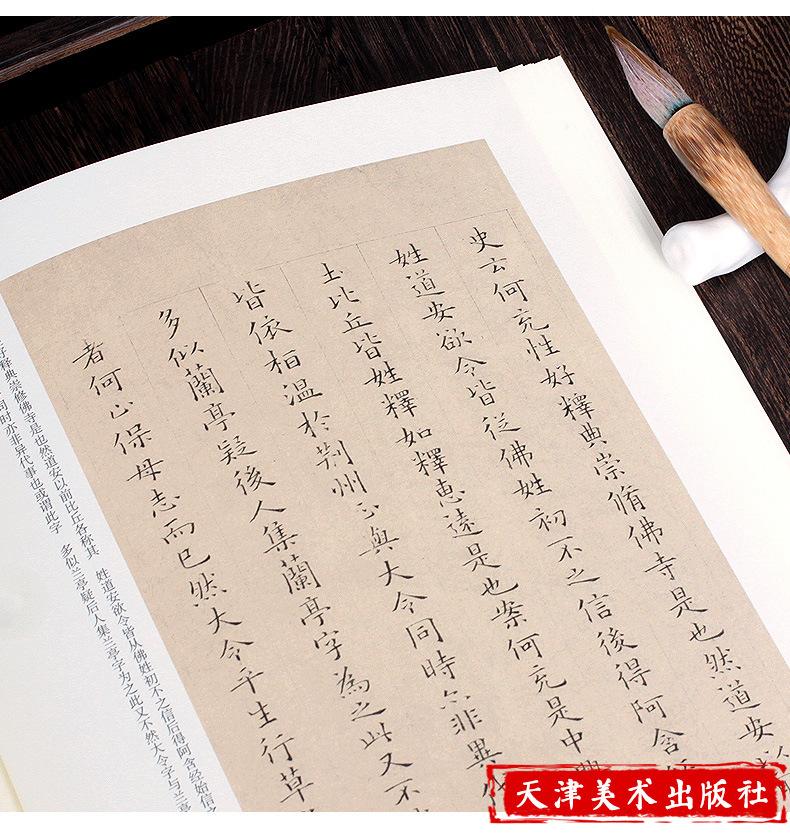 史云何充性好釋典崇脩佛寺是也然道安
姓道安欲令皆從佛姓初不之信後得阿含
土比丘皆姓釋如釋惠遠是也案何充是中
皆依桓温於荆州正與大令同時六非異代
多似蘭亭疑後人集蘭亭字為之此又不
者何心保母志而已然大令平生行草
释典崇修佛寺是也然道安以前比丘各称其 姓道安欲令皆从佛姓初不之信后得阿含经始信之
同时亦非异代事也或谓此字 多似兰亭疑后人集兰亭字为之此又不然大令字与兰亭
天津美术出版社